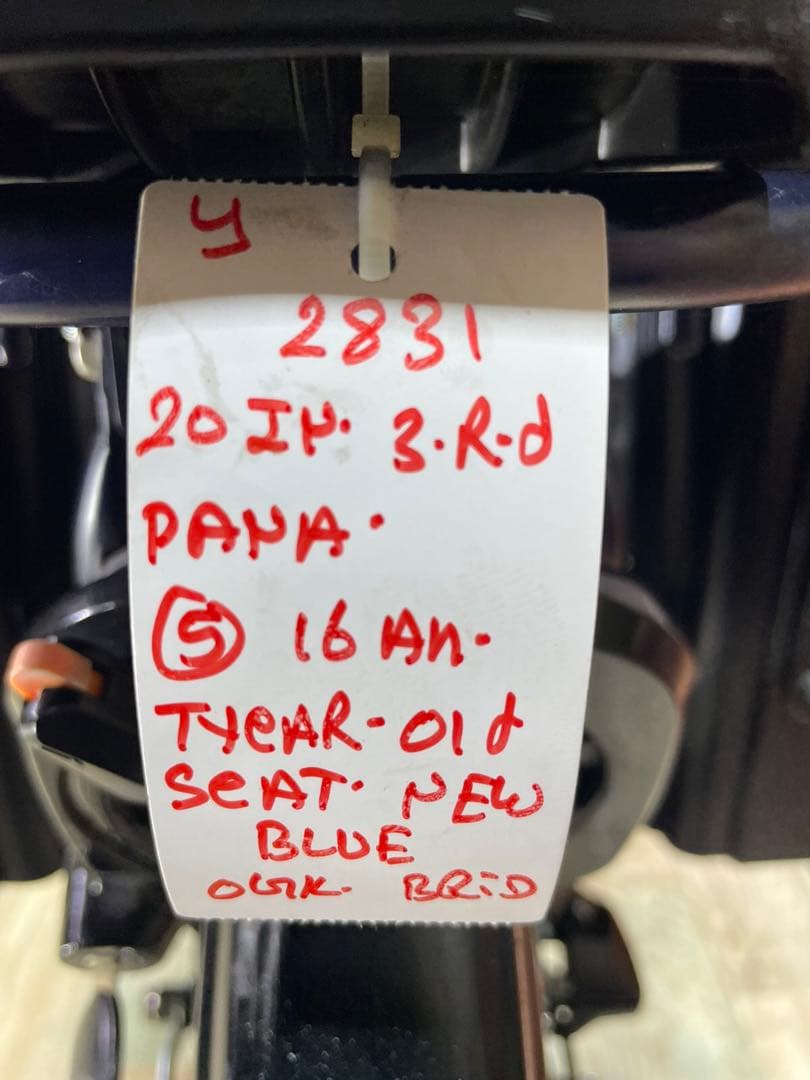 y
2831
20 IN. 3.R.d
PANA.
5 16 An.
TyeAR-old
SeAT. NEW
BLUE
BRiD